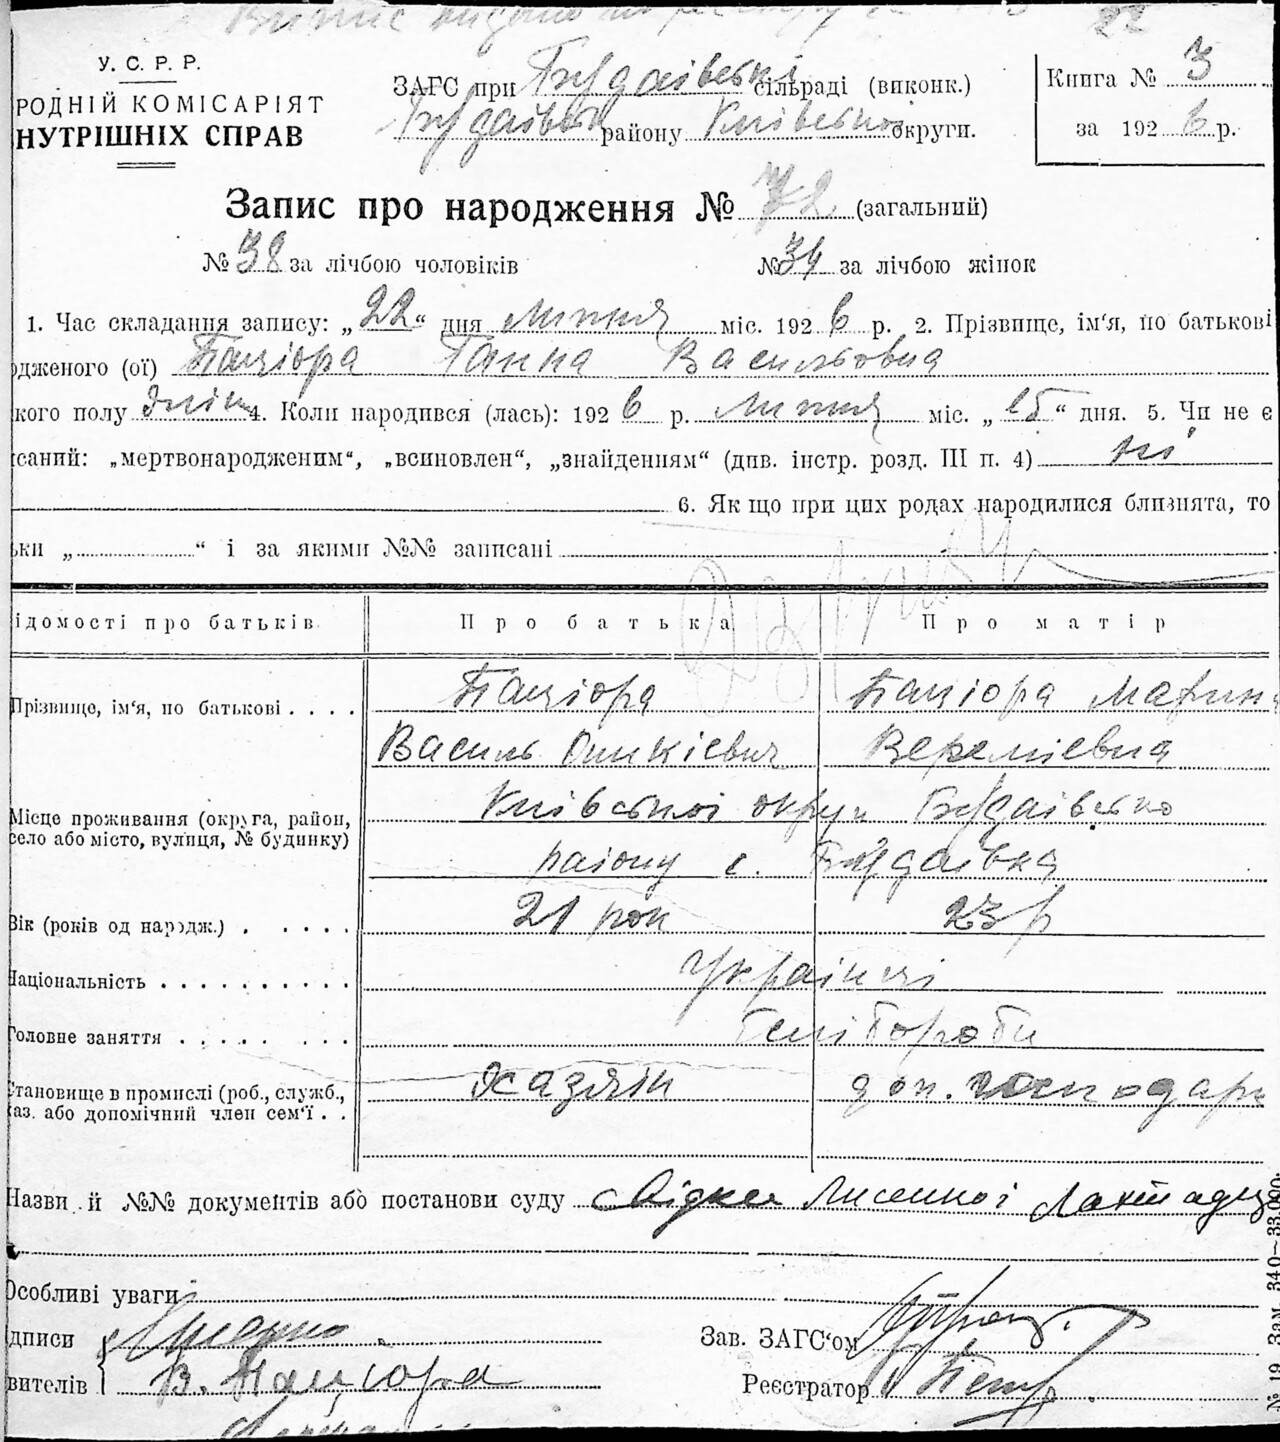 У. С. Р. Р.
РОДНІЙ КОМІСАРІЯТ
НУТРІШНІХ СПРАВ
ЗАГС при Будаівські сільраді (виконк.)
Будаівськ району Київсько округи.
Книга № 3
за 192 6 р.
Запис про народження № 72 (загальний)
№ 38 за лічбою чоловіків № 34 за лічбою жінок
1. Час складання запису: „22“ дня липня міс. 192 6 р. 2. Прізвище, ім‘я, по батькові
дженого (ої) Пацюра Ганна Васильовна
кого полу жін 4. Коли народився (лась): 192 6 р. липня міс. „15“ дня. 5. Чи не є
саний: „мертвонародженим“, „всиновлен“, „знайденням“ (див. інстр. розд. III п. 4) ні
6. Як що при цих родах народилися близнята, то
ьки „ “ і за якими №№ записані
ідомості про батьків Про батька Про матір
Прізвище, ім‘я, по батькові . . . . Паціора Паціора Марина
Василь Оникієвич Веремієвна
Місце проживання (округа, район, село або місто, вулиця, № будинку) Київської округи Будаівсько
району с. Будаівка
Вік (років од народж.) . . . . . 21 рок 23 р
Національність . . . . . . . . . . Українці
Головне заняття . . . . . . . . Хліборобы
Становище в промислі (роб., служб., аз. або допомічний член сем‘ї . . Хазяін доп. господарк
Назви й №№ документів або постанови суду свідки Лисенко і
Особливі уваги
дписи
вителів В. Паціора
Зав. ЗАГС‘ом
Реєстратор
№ 19 Зам. 340—33.000.